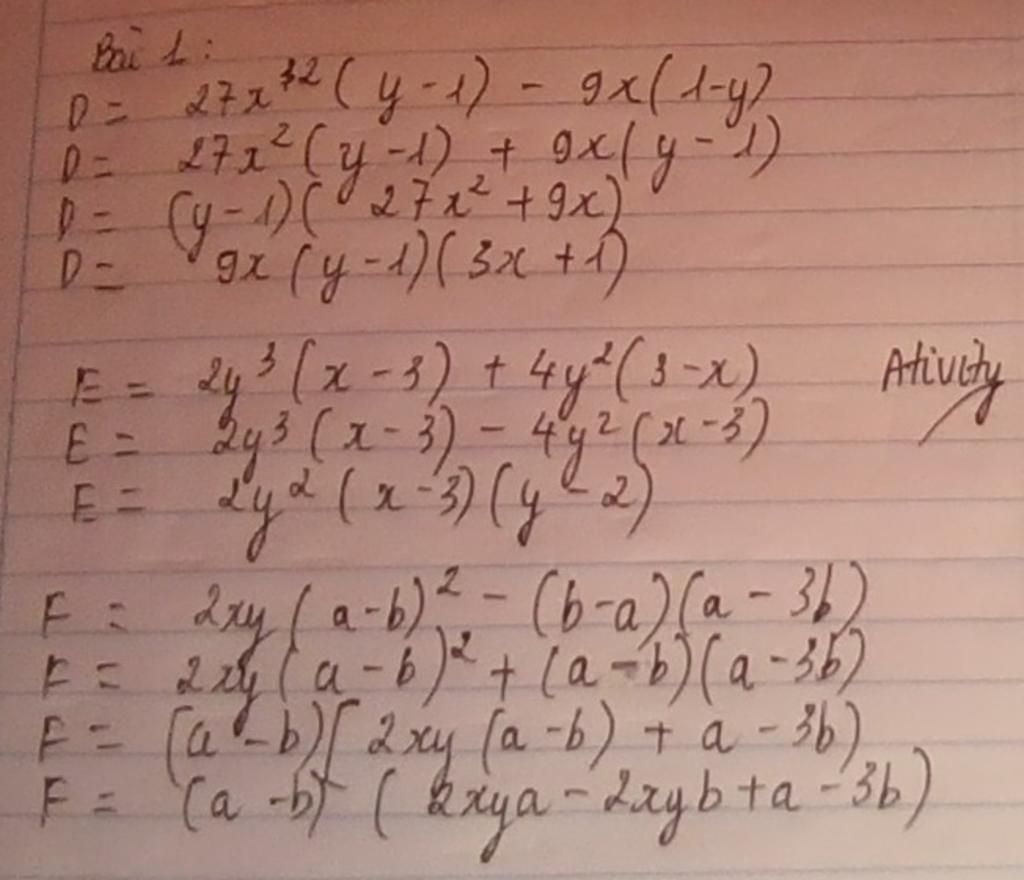 Bài 1:
D = 27x³²(y-1) - 9x(1-y)
D = 27x²(y-1) + 9x(y-1)
D = (y-1)(27x² + 9x)
D = 9x(y-1)(3x+1)
E = 2y³(x-3) + 4y²(3-x) Ativity
E = 2y³(x-3) - 4y²(x-3)
E = 2y²(x-3)(y-2)
F = 2xy(a-b)² - (b-a)(a-3b)
F = 2xy(a-b)² + (a-b)(a-3b)
F = (a-b)[2xy(a-b) + a - 3b)
F = (a-b)(2xya - 2xyb + a - 3b)